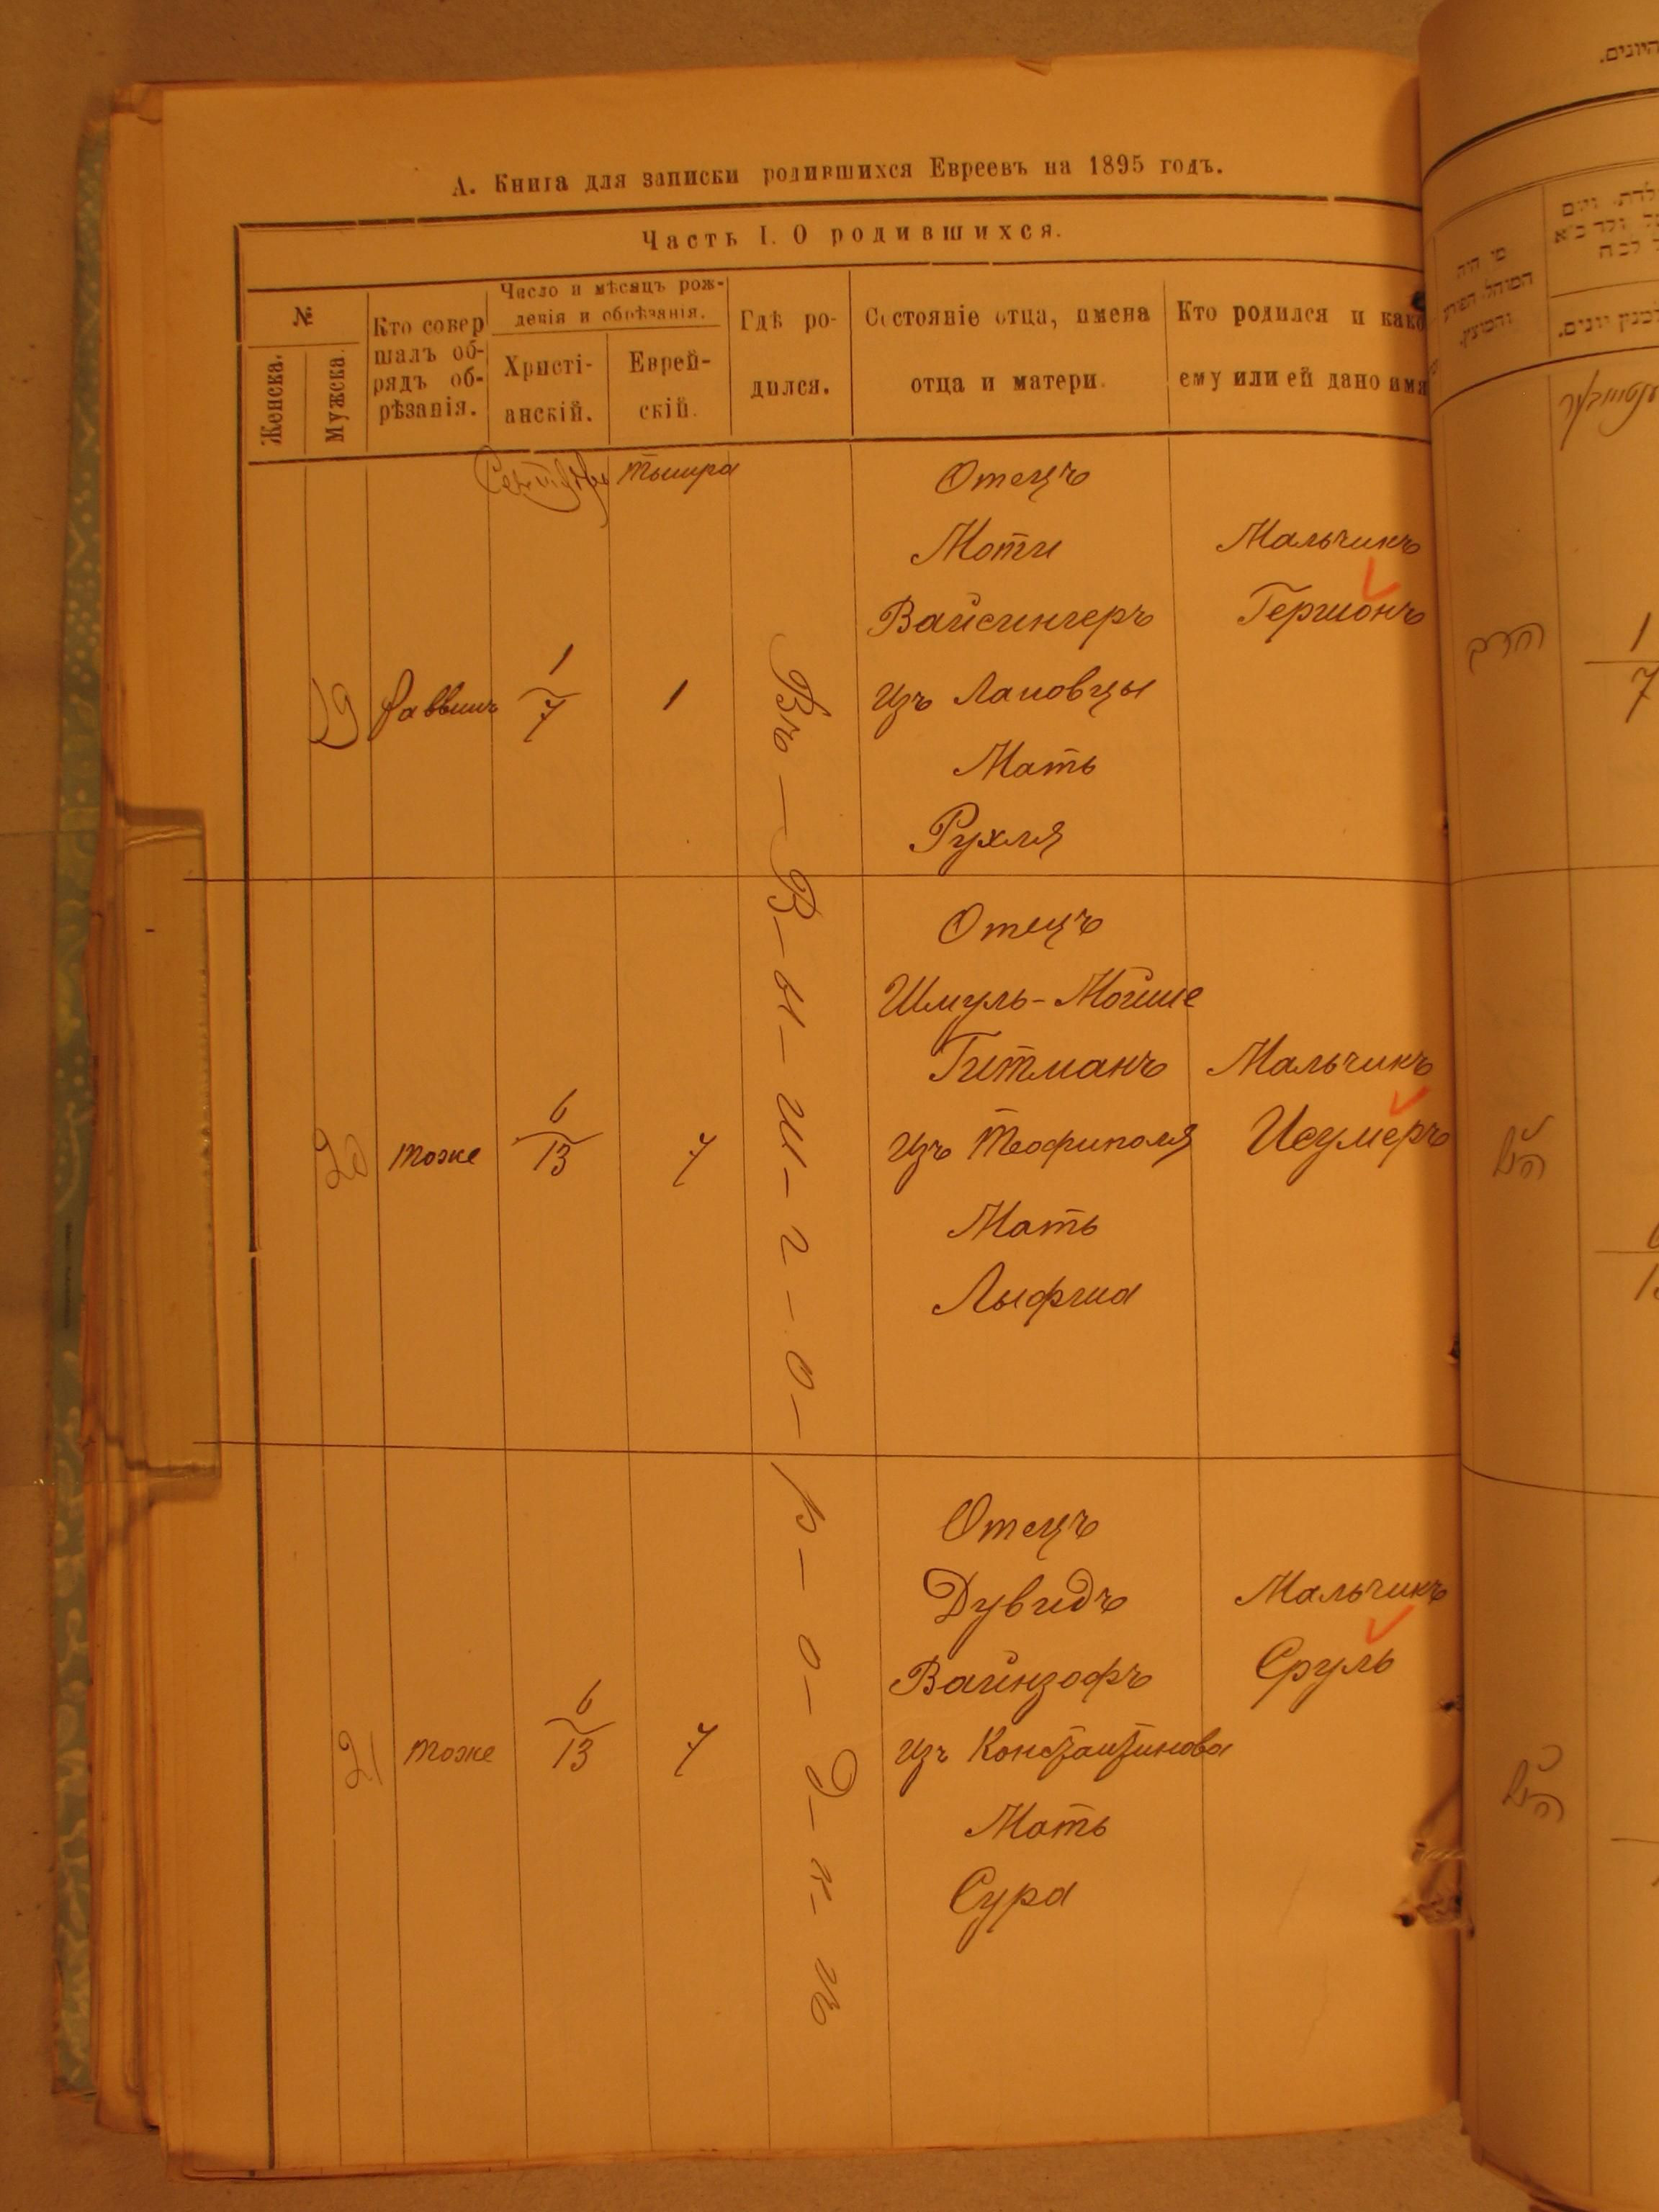 А. Книга для записки родившихся Евреевъ на 1895 годъ.
Часть I. О родившихся.
№
Женска.
Мужска.
Кто совер
шалъ об-
рядъ об-
рѣзанія.
Число и мѣсяцъ рож-
денія и обрѣзанія.
Христі-
анскій.
Еврей-
скій.
Гдѣ ро-
дился.
Состояніе отца, имена
отца и матери.
Кто родился и како
ему или ей дано имя
Сентябрь
Тышра
19
Раввинъ
1
7
1
Въ - В - ы - ш - г - о - р - о - д - к - ѣ
Отецъ
Моти
Вайсингеръ
Изъ Лановцы
Мать
Рухля
Мальчикъ
Гершонъ
20
тоже
6
13
7
Отецъ
Шмуль-Мойше
Гитманъ
Изъ Теофиполя
Мать
Мальчикъ
Исумеръ
21
тоже
6
13
7
Отецъ
Дувидъ
Вайнзофъ
Изъ Константинова
Мать
Сура
Мальчикъ
Сруль
היונים.
מי היה
המוהל הפורע
והמוצץ.
1
7